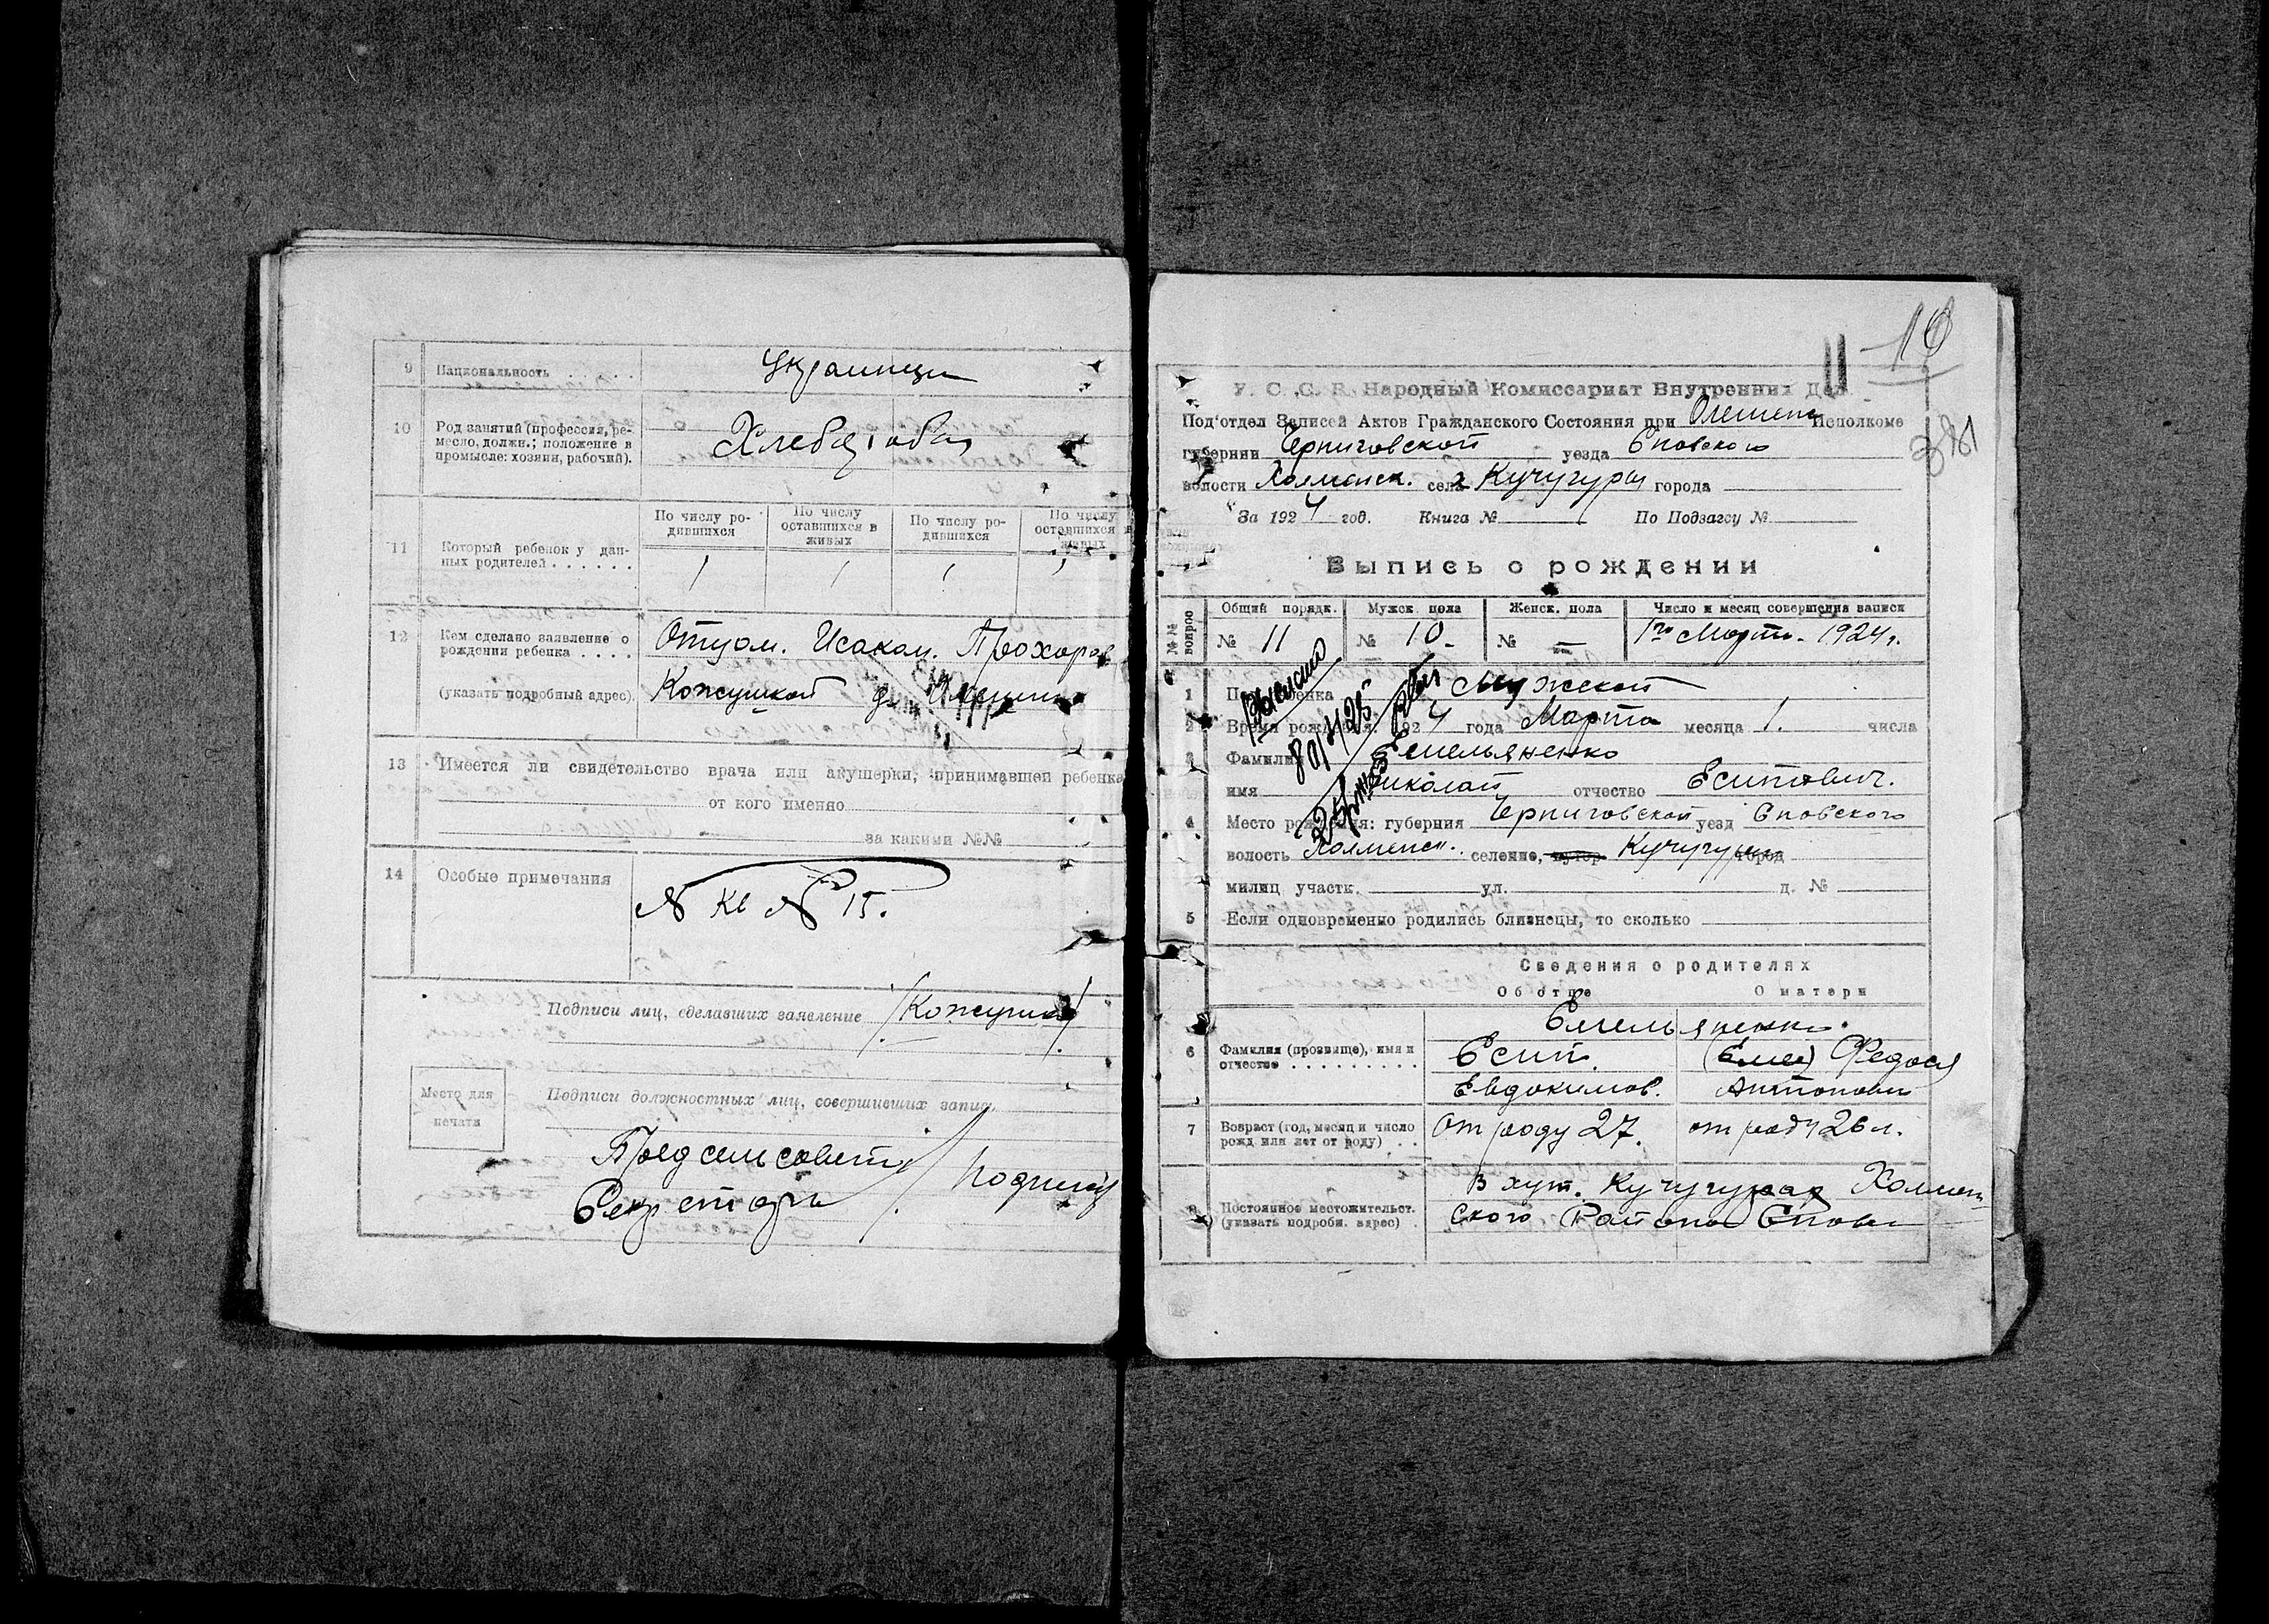 9 Национальность . . . . . Украинцы
10 Род занятий (профессия, ре-
месло, должн.; положение в
промысле: хозяин, рабочий).
Хлебороба
11 Который ребенок у дан-
ных родителей . . . . . .
По числу ро-
дившихся
По числу
оставшихся в
живых
По числу ро-
дившихся
По числу
оставшихся в
живых
1 1 1 1
12 Кем сделано заявление о
рождении ребенка . . . .
(указать подробный адрес).
Отцом. Исаком. Прохоров
Кожушкой
13 Имеется ли свидетельство врача или акушерки, принимавшей ребенка
от кого именно
за какими №№
14 Особые примечания
№ 15.
Подписи лиц, сделавших заявление /Кожушка/
Место для
печати
Подписи должностных лиц, совершивших запись
Предсельсовета
Секретарь
16
11
381
У. С. С. Р. Народный Комиссариат Внутренних Дел
Под'отдел Записей Актов Гражданского Состояния при Исполкоме
губернии Черниговской уезда Сновского
волости Холменск. села х Кучугуры города
За 1924 год. Книга № По Подзагсу №
Выпись о рождении
№№ вопрос
Общий порядк. Мужск. пола Женск. пола Число и месяц совершения записи
№ 11 № 10 - № — 1го Марта. 1924г.
1 Пол ребенка Мужской
2 Время рождения: 1924 года Марта месяца 1. числа
3 Фамилия Емельяненко
имя Николай отчество Есипович.
4 Место рождения: губерния Черниговской уезд Сновского
волость Холменск. селение, хутор Кучугуры город
милиц участк. ул. д. №
5 Если одновременно родились близнецы, то сколько
Сведения о родителях
Об отце О матери
6 Фамилия (прозвище), имя и
отчество . . . . . . . . .
Емельяненко.
Есип. (Емел) Федося
Евдокимов. Антоновн
7 Возраст (год, месяц и число
рожд или лет от роду) . .
От роду 27. от роду 26 л.
8 Постоянное местожительст.
(указать подробн. адрес) .
В хут. Кучугурах Холмен
ского Района Сновс